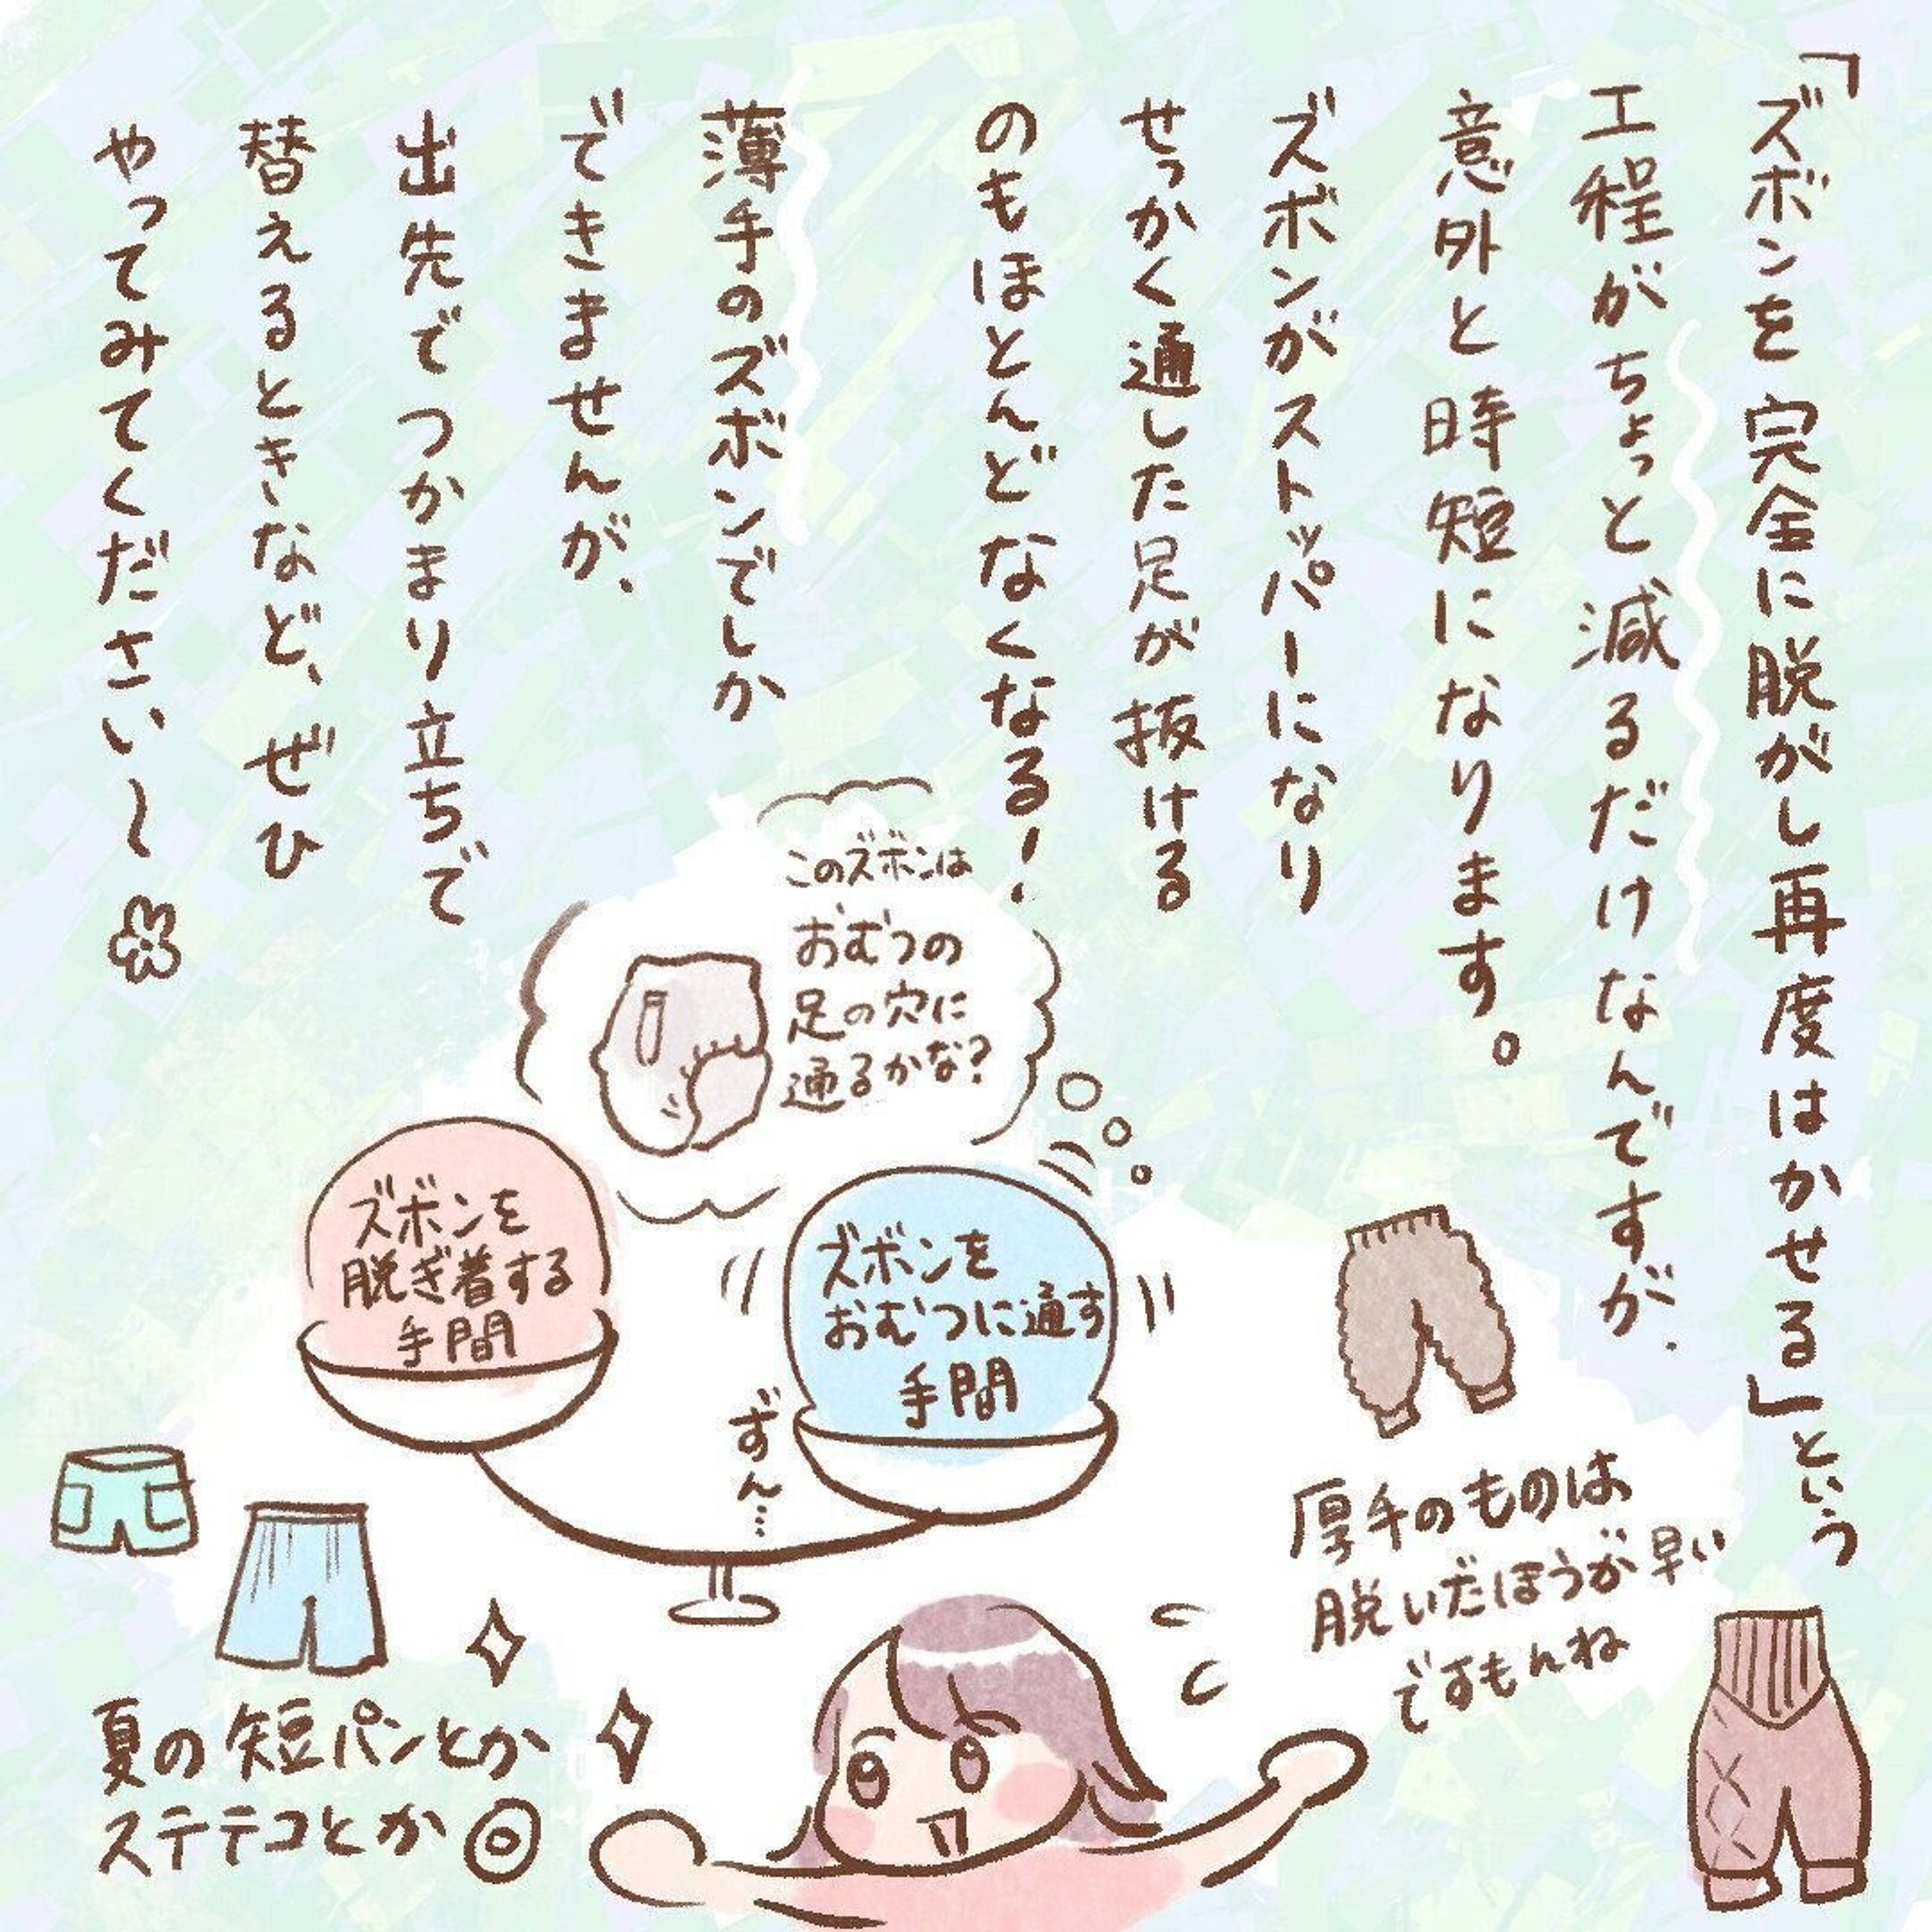 「ズボンを完全に脱がし再度はかせる」という
工程がちょっと減るだけなんですが、
意外と時短になります。
ズボンがストッパーになり
せっかく通した足が抜ける
のもほとんどなくなる!
薄手のズボンでしか
できませんが、
出先でつかまり立ちで
替えるときなど、ぜひ
やってみてください〜
このズボンは
おむつの
足の穴に
通るかな?
ズボンを
脱ぎ着する
手間
ズボンを
おむつに通す
手間
ずん…
厚手のものは
脱いだほうが早い
ですもんね
夏の短パンとか
ステテコとか◎